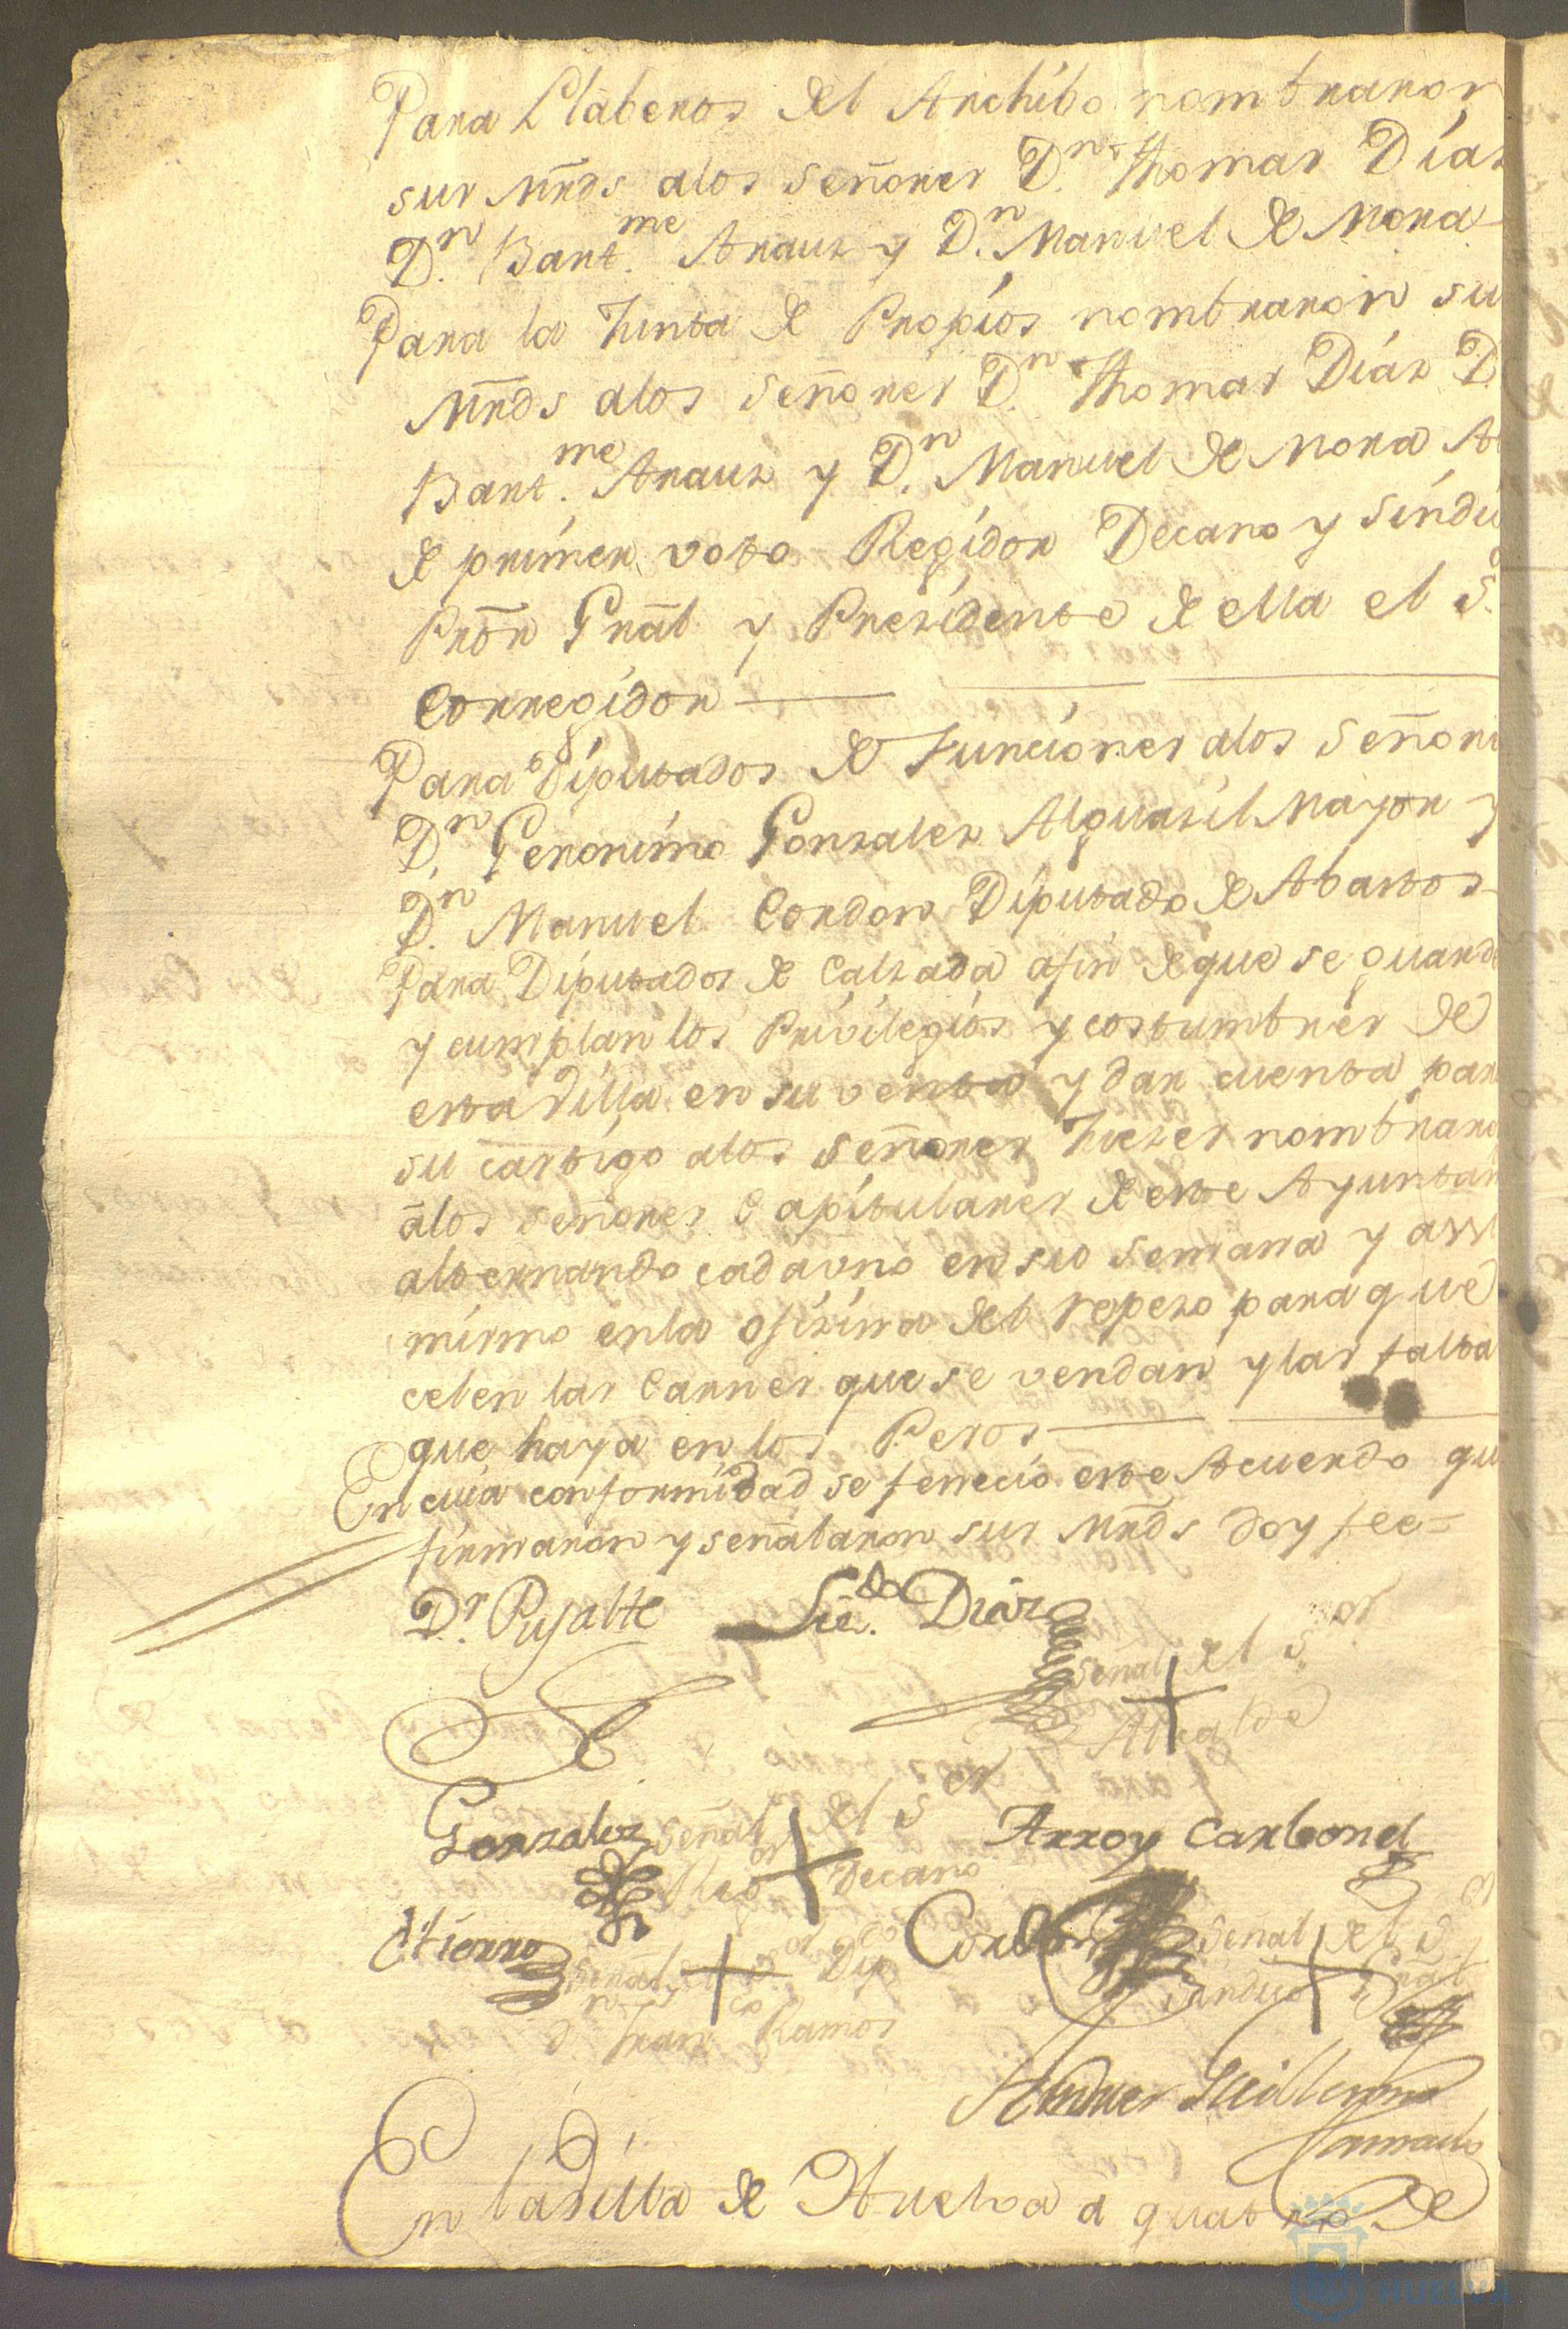 Para Llaberos del Archibo nombraron
sus Mrds alos Señores Dn. Thomas Díaz
Dn. Bartme. Arauz y Dn. Manuel de Mora
Para la Junta de Propios nombraron su
Mrds alos Señores Dn. Thomas Díaz D
Bartme. Arauz y Dn. Manuel de Mora Al
de primer voto Regidor Decano y Sindi
Pror Gral y Presidente de ella el S.
Corregidor
Para Diputados de Funciones alos Señor
Dn. Geronimo Gonzalez Alguazil Mayor y
Dn. Manuel Cordon Diputado de Abastos
Para Diputados de Calzada afin de que se guard
y cumplan los Privilegios y costumbres de
esta Villa en su venta y dar cuenta par
su castigo alos Señores Juezes nombraro
alos Señores Capitulares de este Ayuntam
alternando cada uno en su semana y assi
mismo enla ofizina del repeso para que
celen las Carnes que se vendan y las falta
que haya en los Pesos
En cuia conformidad se feneció este Acuerdo qu
firmaron y señalaron sus Mrds doy fee=
Dr. Puyalte Licdo. Diaz
Señal del Sor
Alcalde
Gonzalez Señal del Sor Arroy Carbonel
Regor Decano
Hierro Señal del Sor Dipdo Cordon Señal del Sor
Dn Franco Ramos Sindico Gral
Guillermo
Camacho
En la Villa de Huelva a quatro de
HUELVA